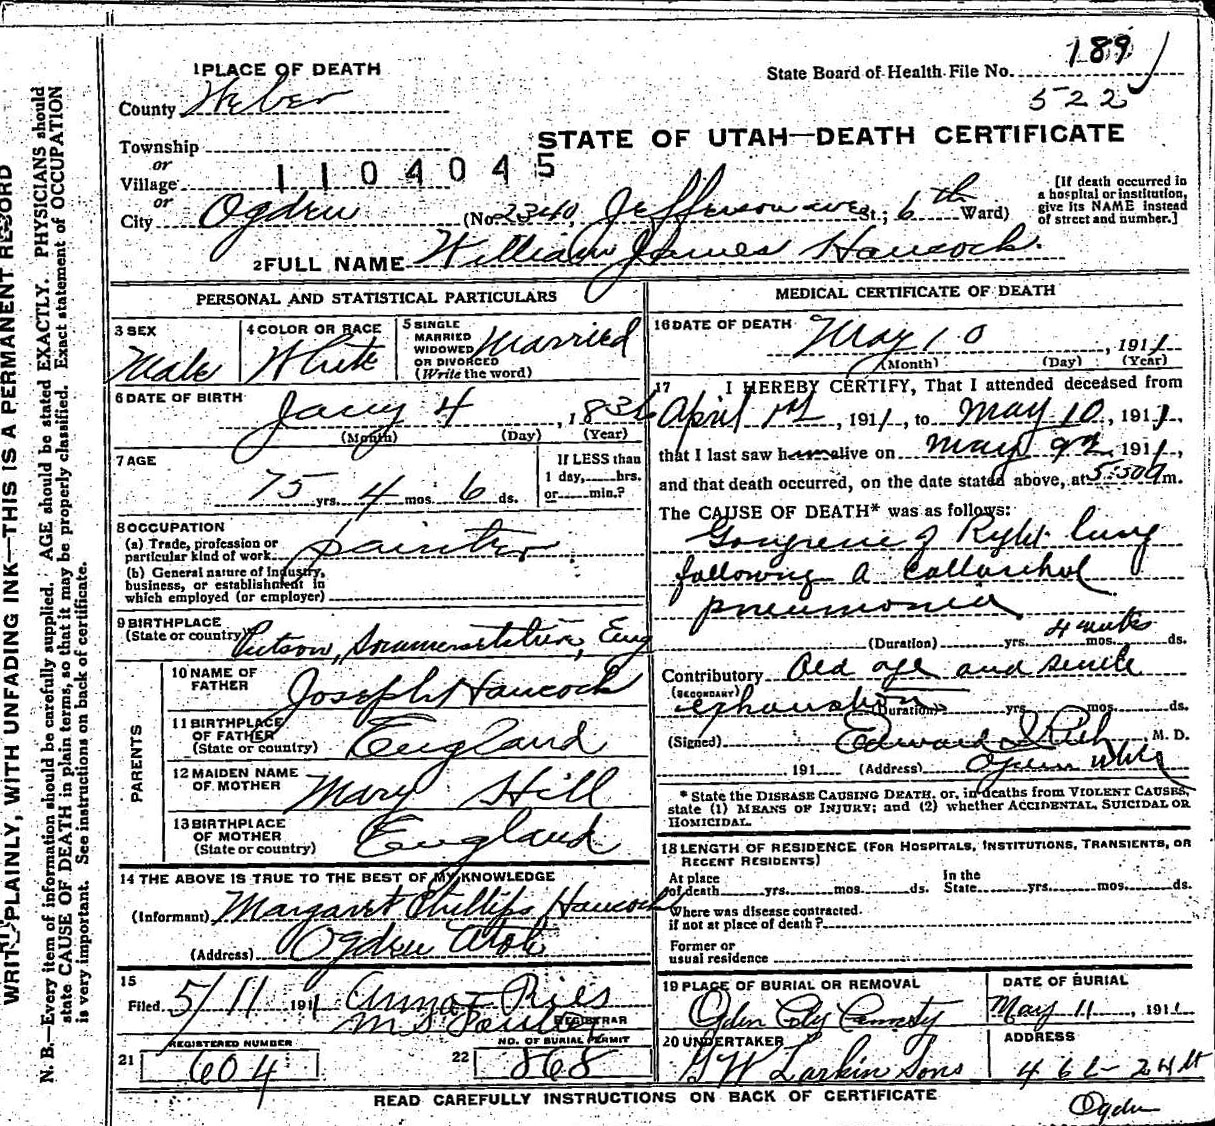 189
State Board of Health File No.
522
1 PLACE OF DEATH
County Weber
STATE OF UTAH—DEATH CERTIFICATE
Township
or
Village
1104045
or
City Ogden (No. 2340, Jefferson ave St.; 6th Ward)
[If death occurred in
a hospital or institution,
give its NAME instead
of street and number.]
2 FULL NAME William James Hancock.
PERSONAL AND STATISTICAL PARTICULARS
3 SEX
Male
4 COLOR OR RACE
White
5 SINGLE
MARRIED
WIDOWED
OR DIVORCED
(Write the word)
Married
6 DATE OF BIRTH
Jany 4, 183
(Month) (Day) (Year)
7 AGE
75 yrs. 4 mos. 6 ds.
If LESS than
1 day, hrs.
or min.?
8 OCCUPATION
(a) Trade, profession or
particular kind of work painter
(b) General nature of Industry,
business, or establishment in
which employed (or employer)
9 BIRTHPLACE
(State or country) Sommersetshire, Eng
PARENTS
10 NAME OF
FATHER Joseph Hancock
11 BIRTHPLACE
OF FATHER
(State or country) England
12 MAIDEN NAME
OF MOTHER Mary Hill
13 BIRTHPLACE
OF MOTHER
(State or country) England
14 THE ABOVE IS TRUE TO THE BEST OF MY KNOWLEDGE
(Informant) Margaret Phillips Hancock
(Address) Ogden Utah
15
Filed 5/11 1911 Anna Ries
REGISTRAR
21 REGISTERED NUMBER
604
22 NO. OF BURIAL PERMIT
868
MEDICAL CERTIFICATE OF DEATH
16 DATE OF DEATH
May 10, 1911
(Month) (Day) (Year)
17 I HEREBY CERTIFY, That I attended deceased from
April 1st, 1911, to May 10, 1911,
that I last saw h alive on May 9th, 1911,
and that death occurred, on the date stated above, at 5:50 a m.
The CAUSE OF DEATH* was as follows:
Gangrene of Right lung
following a
pneumonia
(Duration) yrs. mos. ds.
4 weeks
Contributory Old age and senile
(SECONDARY)
exhaustion (Duration) yrs. mos. ds.
(Signed) Edward I Rich, M. D.
191 (Address) Ogden Utah
* State the DISEASE CAUSING DEATH, or, in deaths from VIOLENT CAUSES,
state (1) MEANS OF INJURY; and (2) whether ACCIDENTAL, SUICIDAL OR
HOMICIDAL.
18 LENGTH OF RESIDENCE (FOR HOSPITALS, INSTITUTIONS, TRANSIENTS, OR
RECENT RESIDENTS)
At place
of death yrs. mos. ds.
In the
State yrs. mos. ds.
Where was disease contracted.
if not at place of death?
Former or
usual residence
19 PLACE OF BURIAL OR REMOVAL
Ogden City
DATE OF BURIAL
May 11, 1911
20 UNDERTAKER
G W Larkin Sons
ADDRESS
24 St
Ogden
READ CAREFULLY INSTRUCTIONS ON BACK OF CERTIFICATE
WRITE PLAINLY, WITH UNFADING INK—THIS IS A PERMANENT RECORD
N. B.—Every item of information should be carefully supplied. AGE should be stated EXACTLY. PHYSICIANS should
state CAUSE OF DEATH in plain terms, so that it may be properly classified. Exact statement of OCCUPATION
is very important. See instructions on back of certificate.